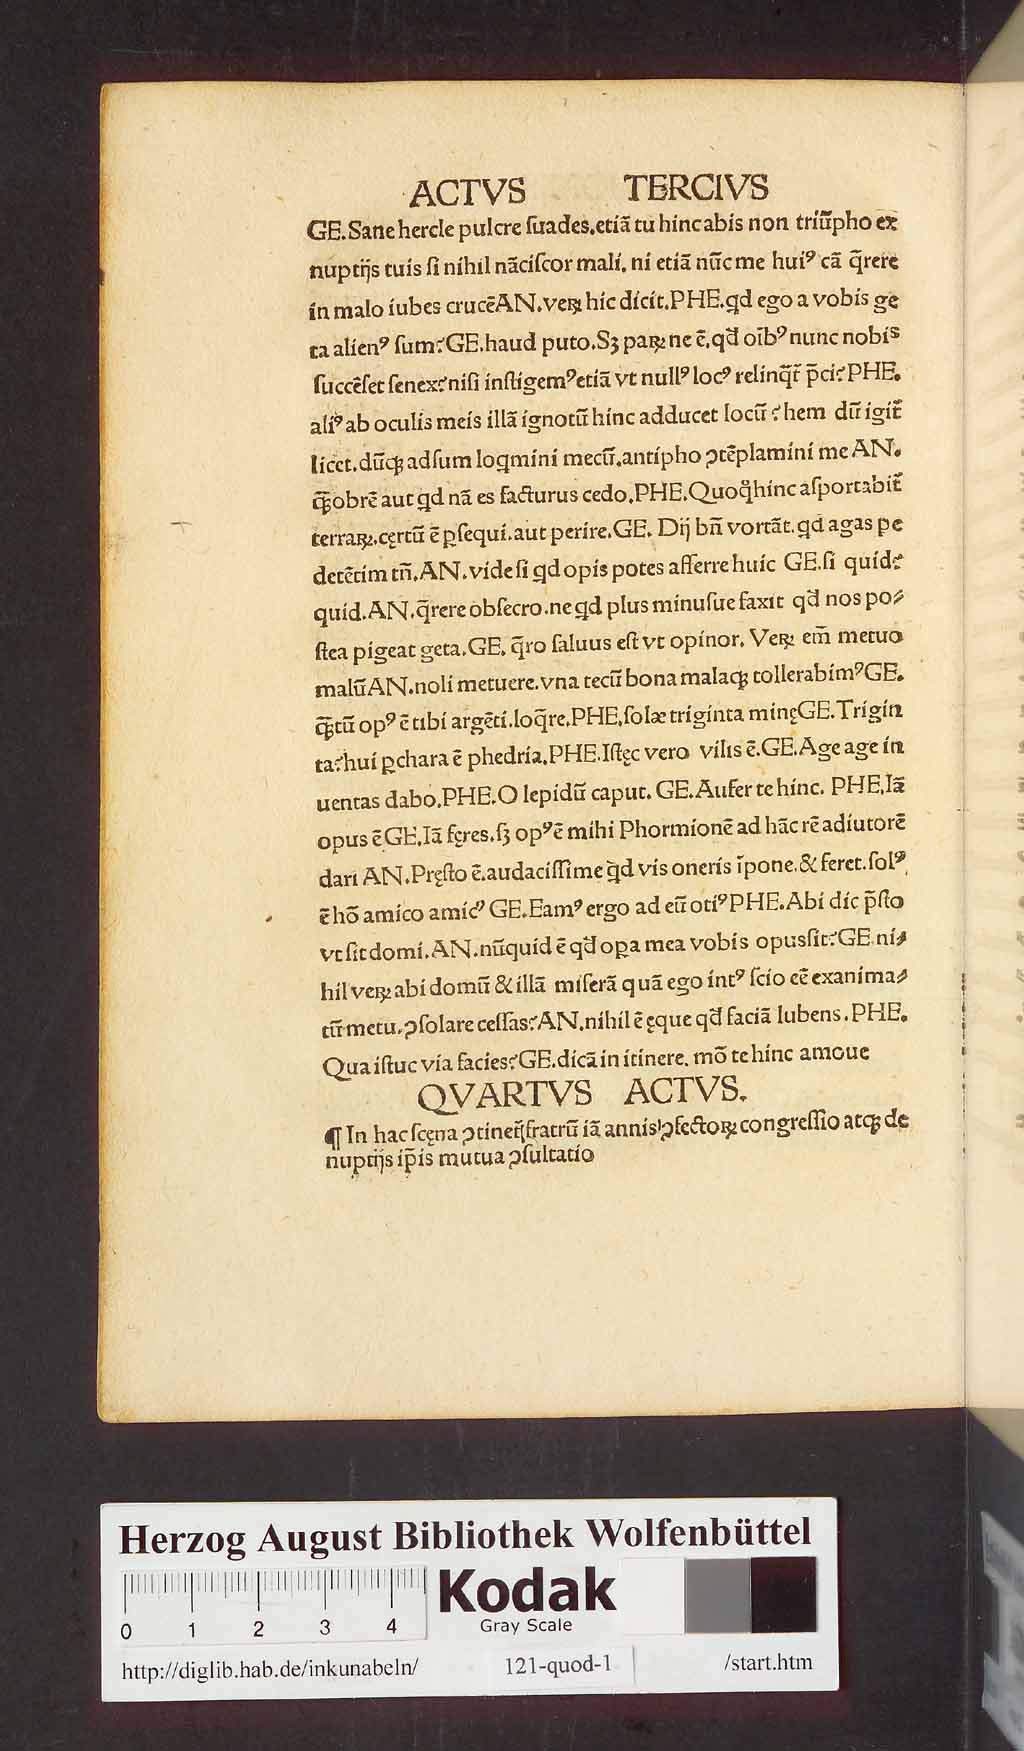 ACTVS TERCIVS
GE.Sane hercle pulcre ſuades.etiā tu hinc abis non triūpho ex
nuptijs tuis ſi nihil nāciſcor mali. ni etiā nūc me huiꝰ cā q̄rere
in malo iubes crucē AN.veꝝ hic dicit.PHE.qd ego a vobis ge
ta alienꝰ ſum?GE.haud puto.Sꝫ paꝝ ne ē.qđ oībꝰ nunc nobis
ſuccēſet ſenex?niſi inſtigemꝰ etiā vt nullꝰ locꝰ relinq̄t̄ p̄ci?PHE.
aliꝰ ab oculis meis illā ignotū hinc adducet locū? hem dū igit̄
licet.dūꝗ adſum loqmini mecū.antipho ↄtēplamini me AN.
ꝗ̄obrē aut qd nā es facturus cedo.PHE.Quoq̄ hinc aſportabit̄
terraꝝ.cęrtū ē ꝑſequi.aut perire.GE. Dij bn̄ vortāt.qd agas pe
detētim tn̄.AN.vide ſi qd opis potes afferre huic GE.ſi quid?
quid.AN.q̄rere obſecro.ne qd plus minuſue faxit qđ nos po⸗
ſtea pigeat geta.GE. q̄ro ſaluus eſt vt opinor. Veꝝ em̄ metuo
malū AN.noli metuere.vna tecū bona malaꝗ tollerabimꝰ GE.
ꝗ̄tū opꝰ ē tibi argēti.loq̄re.PHE.ſolæ triginta minę GE.Trigin
ta?hui ꝑchara ē phedria.PHE.Iſtęc vero vilis ē.GE.Age age in
uentas dabo.PHE.O lepidū caput. GE.Aufer te hinc. PHE.Iā
opus ē GE.Iā fęres.ſꝫ opꝰ ē mihi Phormionē ad hāc rē adiutorē
dari AN.Pręſto ē.audaciſſime qd vis oneris īpone.& feret.ſolꝰ
ē hō amico amicꝰ GE.Eamꝰ ergo ad eū otiꝰ PHE.Abi dic p̄ſto
vt ſit domi.AN.nūquid ē qđ oꝑa mea vobis opus ſit?GE.ni⸗
hil veꝝ abi domū & illā miſerā quā ego intꝰ ſcio eē exanima⸗
tū metu.ↄſolare ceſſas?AN.nihil ē ęque qđ faciā lubens.PHE.
Qua iſtuc via facies?GE.dicā in itinere. mō te hinc amoue
QVARTVS ACTVS.
¶ In hac ſcęna ↄtinet̄ fratrū iā annis ↄfectoꝝ congreſſio atꝗ de
nuptijs ip̄is mutua ↄſultatio
Herzog August Bibliothek Wolfenbüttel
Kodak
Gray Scale
0 1 2 3 4
http://diglib.hab.de/inkunabeln/ 121-quod-1 /start.htm